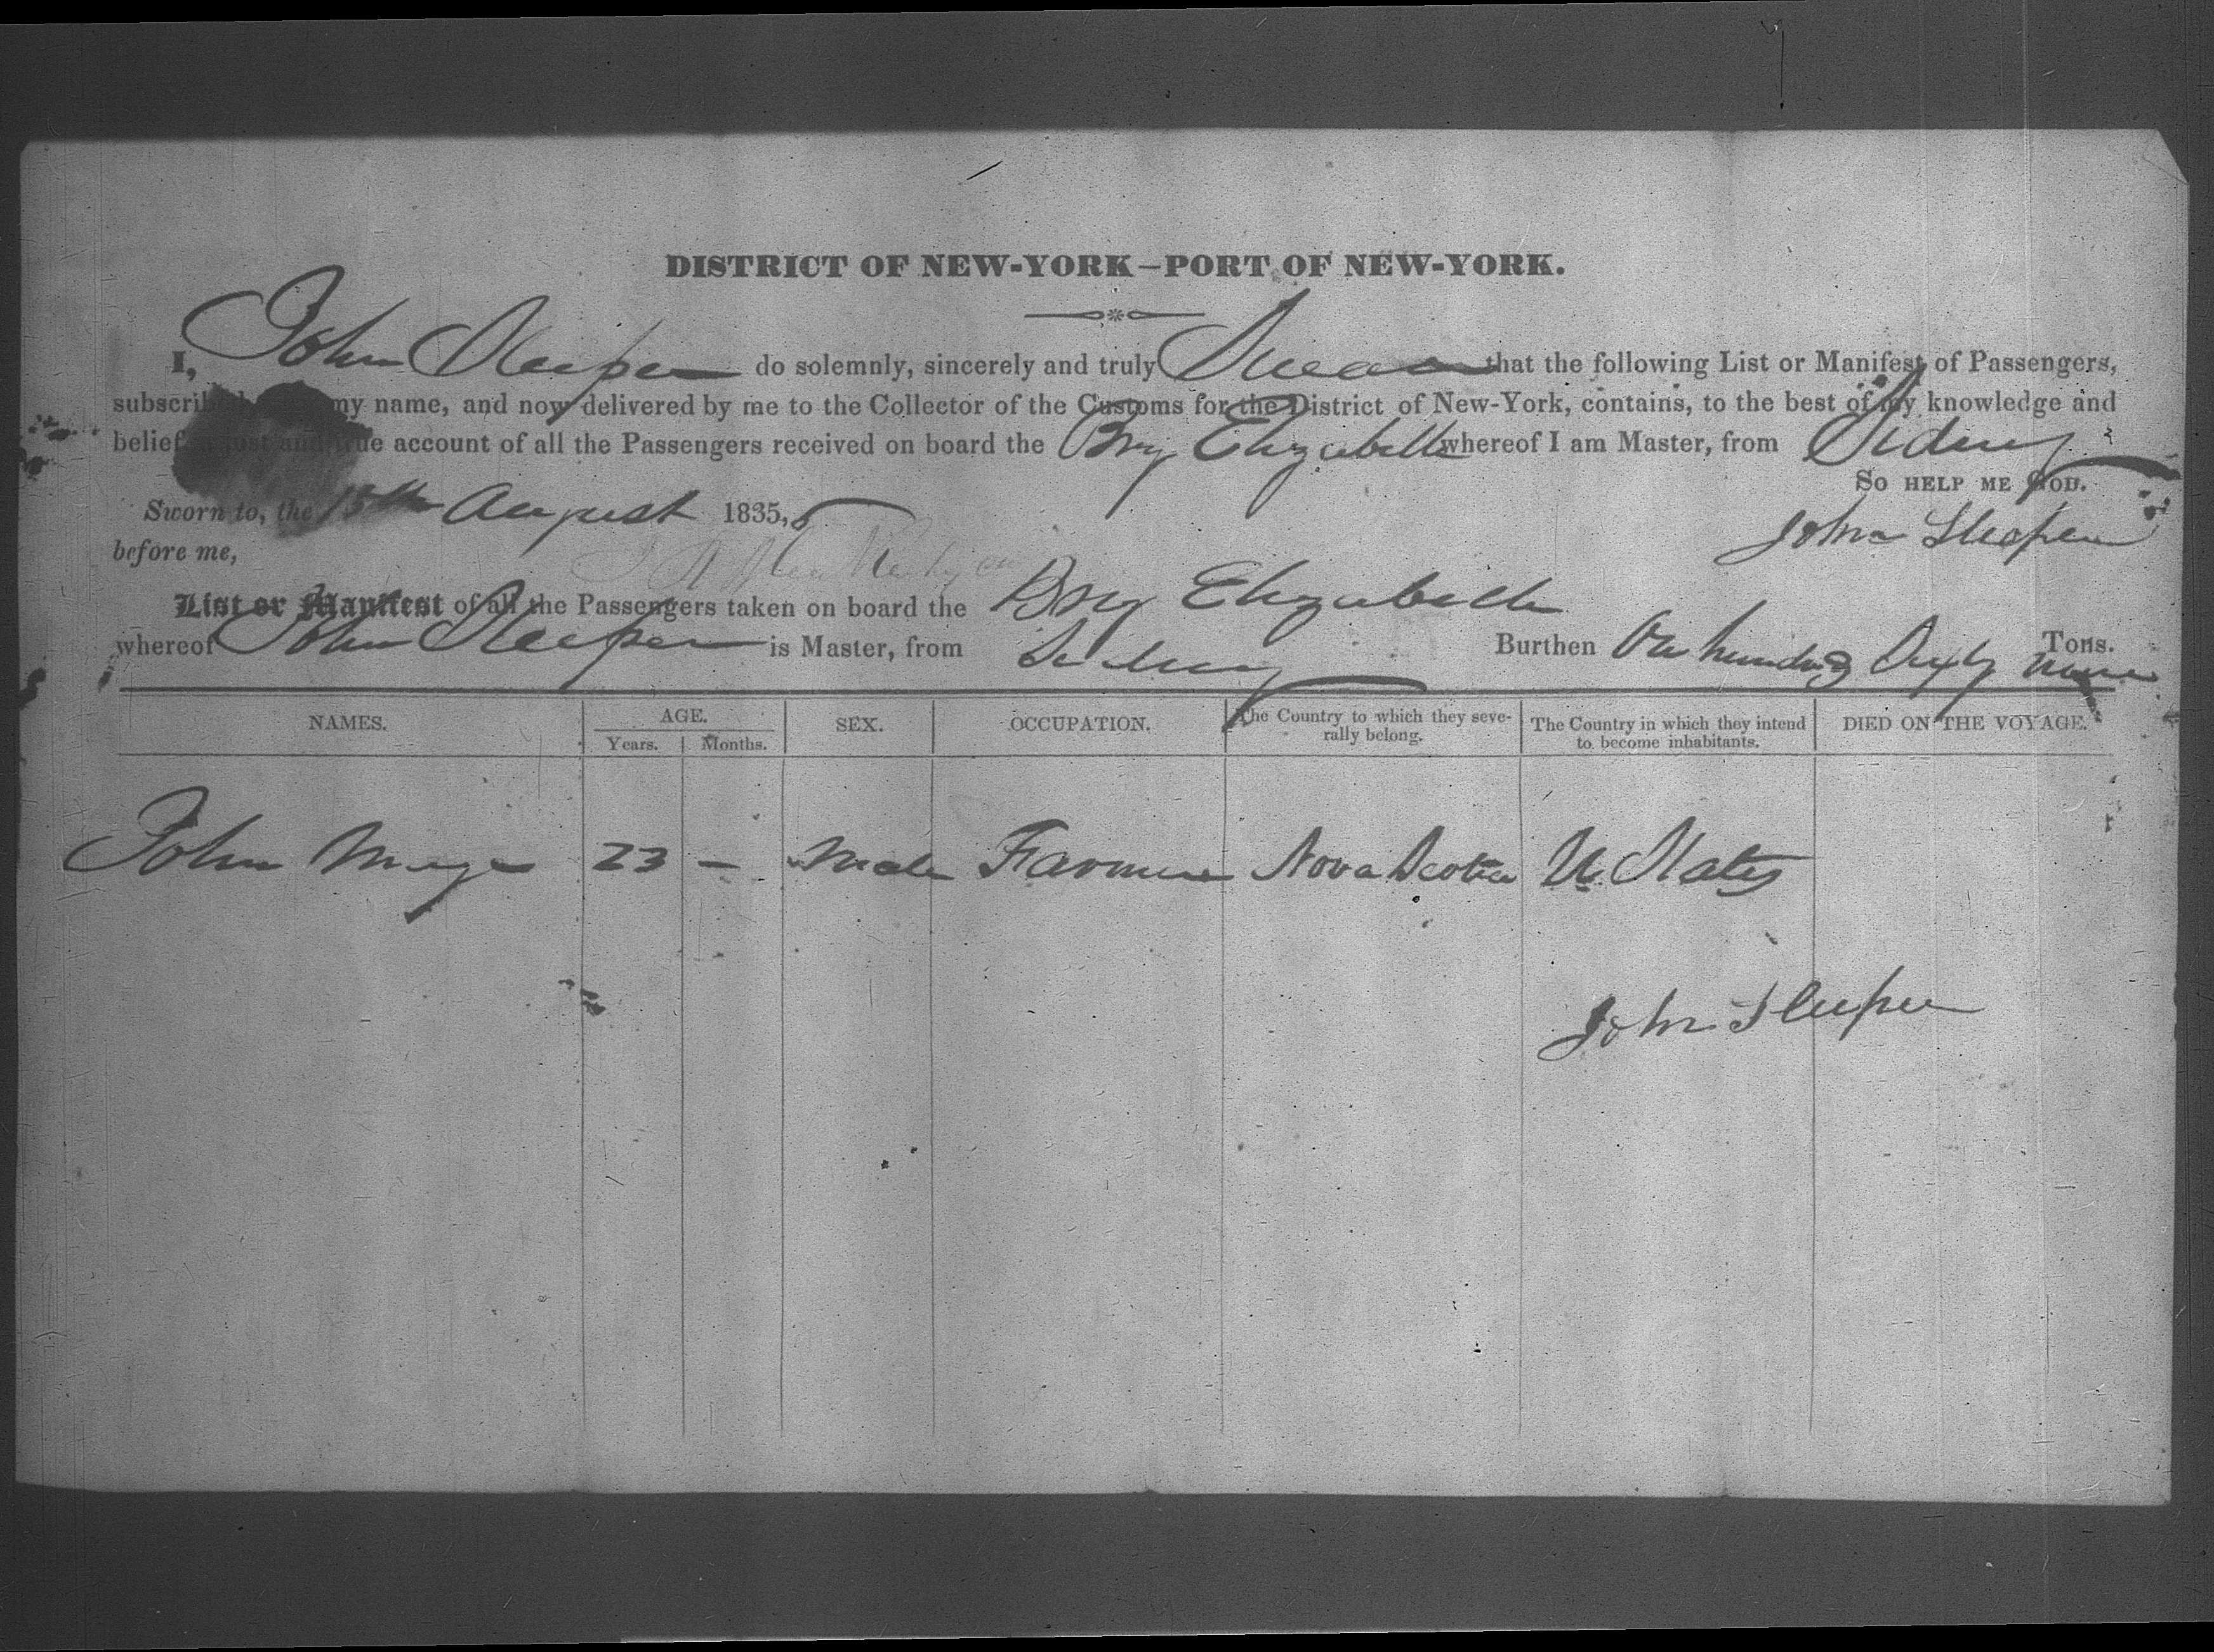 DISTRICT OF NEW-YORK–PORT OF NEW-YORK.
I, John Sleeper do solemnly, sincerely and truly Swear that the following List or Manifest of Passengers,
subscribed my name, and now delivered by me to the Collector of the Customs for the District of New-York, contains, to the best of my knowledge and
belief, a just and true account of all the Passengers received on board the Brig Elizabeth whereof I am Master, from Sidney
So help me God.
Sworn to, the 15th August 1835,
John Sleeper
before me,
List or Manifest of all the Passengers taken on board the Brig Elizabeth
whereof John Sleeper is Master, from Sidney Burthen One hundred Sixty nine Tons.
NAMES. AGE. Years. Months. SEX. OCCUPATION. The Country to which they severally belong. The Country in which they intend to become inhabitants. DIED ON THE VOYAGE.
John 23 – Male Farmer Nova Scotia U. States
John Sleeper